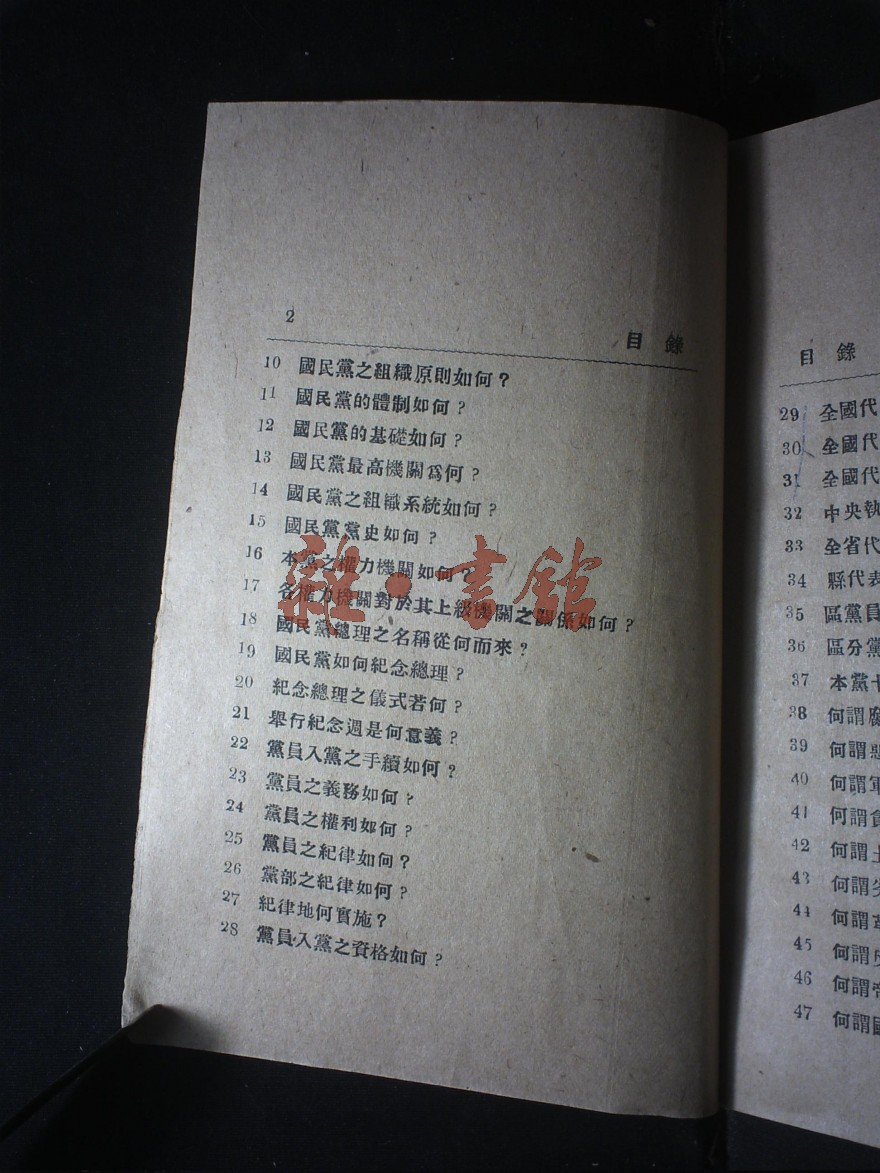 2
目錄
10 國民黨之組織原則如何？
11 國民黨的體制如何？
12 國民黨的基礎如何？
13 國民黨最高機關爲何？
14 國民黨之組織系統如何？
15 國民黨黨史如何？
16 本黨之權力機關如何？
17 各權力機關對於其上級機關之關係如何？
18 國民黨總理之名稱從何而來？
19 國民黨如何紀念總理？
20 紀念總理之儀式若何？
21 舉行紀念週是何意義？
22 黨員入黨之手續如何？
23 黨員之義務如何？
24 黨員之權利如何？
25 黨員之紀律如何？
26 黨部之紀律如何？
27 紀律地何實施？
28 黨員入黨之資格如何？
雜·書館
目錄
29 全國代
30 全國代
31 全國代
32 中央執
33 全省代
34 縣代表
35 區黨員
36 區分黨
37 本黨十
38 何謂腐
39 何謂惡
40 何謂軍
41 何謂貪
42 何謂土
43 何謂劣
44 何謂
45 何謂
46 何謂帝
47 何謂國